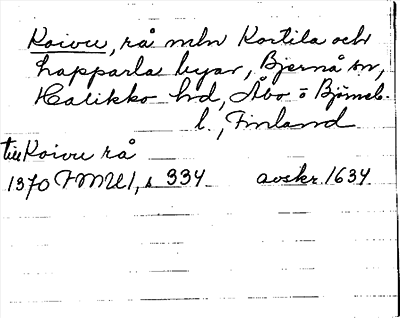 Koivu, rå mln Kortila och
Lapparla byar, Bjernå sn,
Halikko hd, Åbo o Björneb.
l., Finland
till Koivu rå
1370 FMU 1, s 334 avskr. 1634